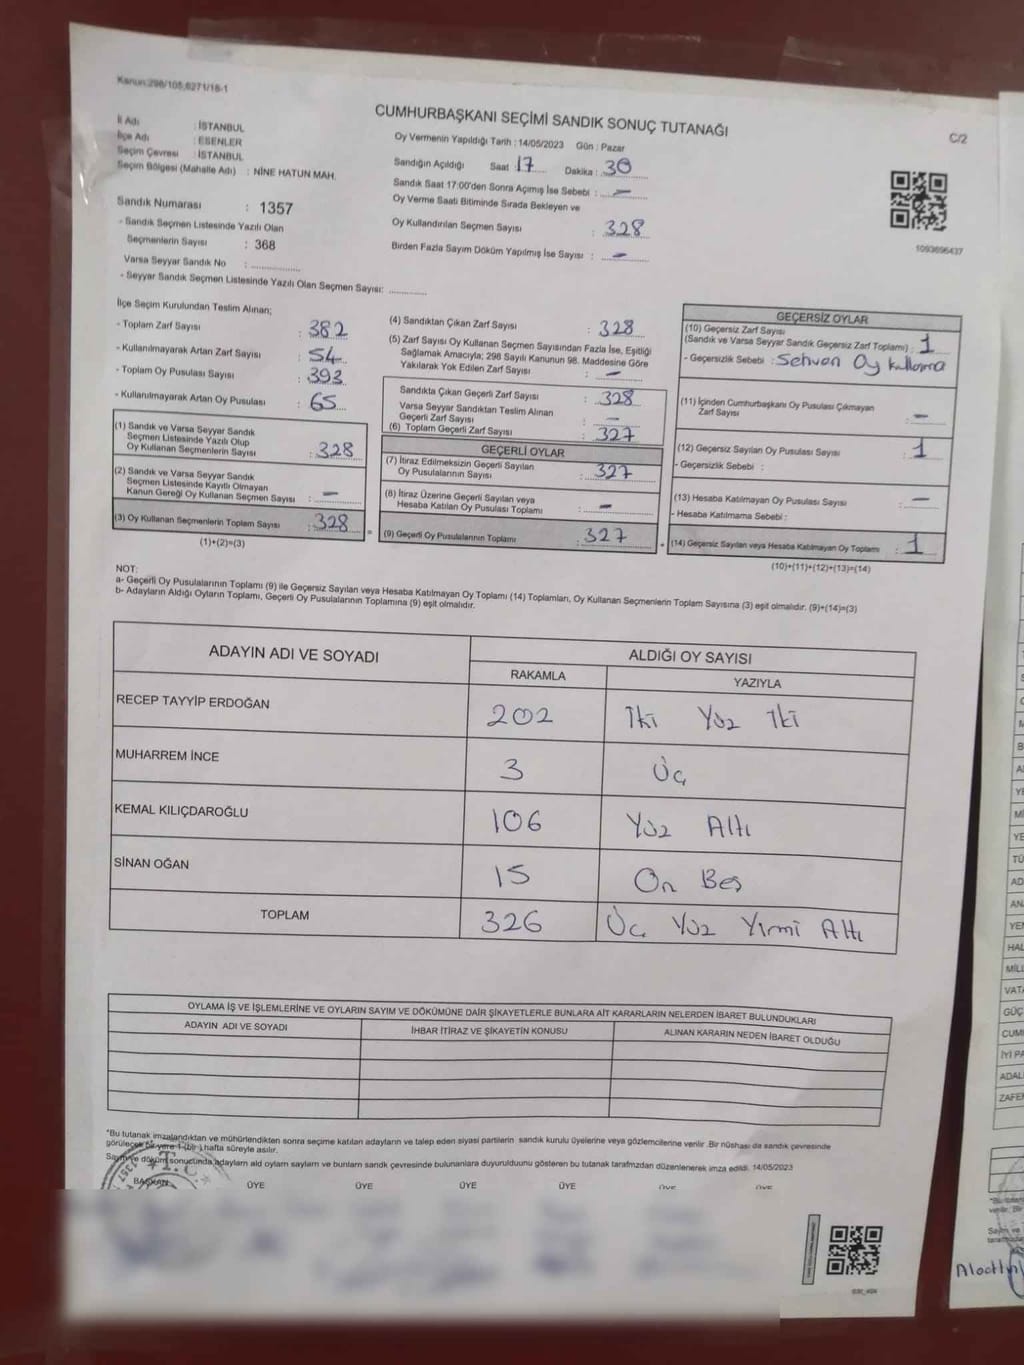 Kanun:298/105,6271/18-1
CUMHURBAŞKANI SEÇİMİ SANDIK SONUÇ TUTANAĞI
C/2
İl Adı : İSTANBUL
İlçe Adı : ESENLER
Seçim Çevresi : İSTANBUL
Seçim Bölgesi (Mahalle Adı) : NİNE HATUN MAH.
Oy Vermenin Yapıldığı Tarih : 14/05/2023 Gün : Pazar
Sandığın Açıldığı Saat 17 Dakika : 30
Sandık Saat 17:00'den Sonra Açımış İse Sebebi : -
Oy Verme Saati Bitiminde Sırada Bekleyen ve
Oy Kullandırılan Seçmen Sayısı : 328
Birden Fazla Sayım Döküm Yapılmış İse Sayısı : -
1093696437
Sandık Numarası : 1357
- Sandık Seçmen Listesinde Yazılı Olan
Seçmenlerin Sayısı : 368
Varsa Seyyar Sandık No : ..............
- Seyyar Sandık Seçmen Listesinde Yazılı Olan Seçmen Sayısı: ............
İlçe Seçim Kurulundan Teslim Alınan;
- Toplam Zarf Sayısı : 382
- Kullanılmayarak Artan Zarf Sayısı : 54
- Toplam Oy Pusulası Sayısı : 393
- Kullanılmayarak Artan Oy Pusulası : 65
(1) Sandık ve Varsa Seyyar Sandık
Seçmen Listesinde Yazılı Olup
Oy Kullanan Seçmenlerin Sayısı : 328
(2) Sandık ve Varsa Seyyar Sandık
Seçmen Listesinde Kayıtlı Olmayan
Kanun Gereği Oy Kullanan Seçmen Sayısı : -
(3) Oy Kullanan Seçmenlerin Toplam Sayısı : 328
(1)+(2)=(3)
(4) Sandıktan Çıkan Zarf Sayısı : 328
(5) Zarf Sayısı Oy Kullanan Seçmen Sayısından Fazla İse, Eşitliği
Sağlamak Amacıyla; 298 Sayılı Kanunun 98. Maddesine Göre
Yakılarak Yok Edilen Zarf Sayısı : -
Sandıkta Çıkan Geçerli Zarf Sayısı : 328
Varsa Seyyar Sandıktan Teslim Alınan
Geçerli Zarf Sayısı : -
(6) Toplam Geçerli Zarf Sayısı : 327
GEÇERLİ OYLAR
(7) İtiraz Edilmeksizin Geçerli Sayılan
Oy Pusulalarının Sayısı : 327
(8) İtiraz Üzerine Geçerli Sayılan veya
Hesaba Katılan Oy Pusulası Toplamı : -
(9) Geçerli Oy Pusulalarının Toplamı : 327
GEÇERSİZ OYLAR
(10) Geçersiz Zarf Sayısı
(Sandık ve Varsa Seyyar Sandık Geçersiz Zarf Toplamı) : 1
- Geçersizlik Sebebi : Sehven Oy kullanma
(11) İçinden Cumhurbaşkanı Oy Pusulası Çıkmayan
Zarf Sayısı : -
(12) Geçersiz Sayılan Oy Pusulası Sayısı : 1
- Geçersizlik Sebebi :
(13) Hesaba Katılmayan Oy Pusulası Sayısı : -
- Hesaba Katılmama Sebebi :
(14) Geçersiz Sayılan veya Hesaba Katılmayan Oy Toplamı : 1
(10)+(11)+(12)+(13)=(14)
NOT:
a- Geçerli Oy Pusulalarının Toplamı (9) ile Geçersiz Sayılan veya Hesaba Katılmayan Oy Toplamı (14) Toplamları, Oy Kullanan Seçmenlerin Toplam Sayısına (3) eşit olmalıdır. (9)+(14)=(3)
b- Adayların Aldığı Oyların Toplamı, Geçerli Oy Pusulalarının Toplamına (9) eşit olmalıdır.
ADAYIN ADI VE SOYADI ALDIĞI OY SAYISI
RAKAMLA YAZIYLA
RECEP TAYYİP ERDOĞAN 202 İki Yüz İki
MUHARREM İNCE 3 Üç
KEMAL KILIÇDAROĞLU 106 Yüz Altı
SİNAN OĞAN 15 On Beş
TOPLAM 326 Üç Yüz Yirmi Altı
OYLAMA İŞ VE İŞLEMLERİNE VE OYLARIN SAYIM VE DÖKÜMÜNE DAİR ŞİKAYETLERLE BUNLARA AİT KARARLARIN NELERDEN İBARET BULUNDUKLARI
ADAYIN ADI VE SOYADI İHBAR İTİRAZ VE ŞİKAYETİN KONUSU ALINAN KARARIN NEDEN İBARET OLDUĞU
*Bu tutanak imzalandıktan ve mühürlendikten sonra seçime katılan adayların ve talep eden siyasi partilerin sandık kurulu üyelerine veya gözlemcilerine verilir .Bir nüshası da sandık çevresinde
görülecek bir yere 1 (bir) hafta süreyle asılır.
Sayım ve döküm sonucunda adayların ald oyların sayların ve bunların sandk çevresinde bulunanlara duyurulduunu gösteren bu tutanak tarafmzdan düzenlenerek imza edildi. 14/05/2023
BAŞKAN ÜYE ÜYE ÜYE ÜYE ÜYE ÜYE
T.C.
1357